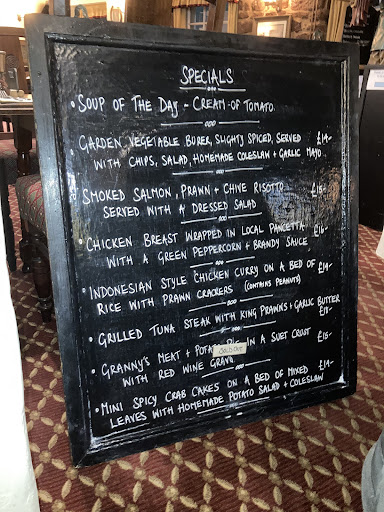 SPECIALS
• SOUP OF THE DAY - CREAM OF TOMATO
GARDEN VEGETABLE BURER, SLIGHTY SPICED, SERVED £14-
WITH CHIPS, SALAD, HOMEMADE COLESLAW + GARLIC MAYO
SMOKED SALMON, PRAWN + CHIVE RISOTTO £15-
SERVED WITH A DRESSED SALAD
• CHICKEN BREAST WRAPPED IN LOCAL PANCETTA £16-
WITH A GREEN PEPPERCORN + BRANDY SAUCE
• INDONESIAN STYLE CHICKEN CURRY ON A BED OF £14-
RICE WITH PRAWN CRACKERS (CONTAINS PEANUTS)
• GRILLED TUNA STEAK WITH KING PRAWNS + GARLIC BUTTER £17-
• GRANNY'S MEAT + POTATO PIE IN A SUET CRUST £15-
WITH RED WINE GRAVY
• MINI SPICY CRAB CAKES ON A BED OF MIXED £14-
LEAVES WITH HOMEMADE POTATO SALAD + COLESLAW